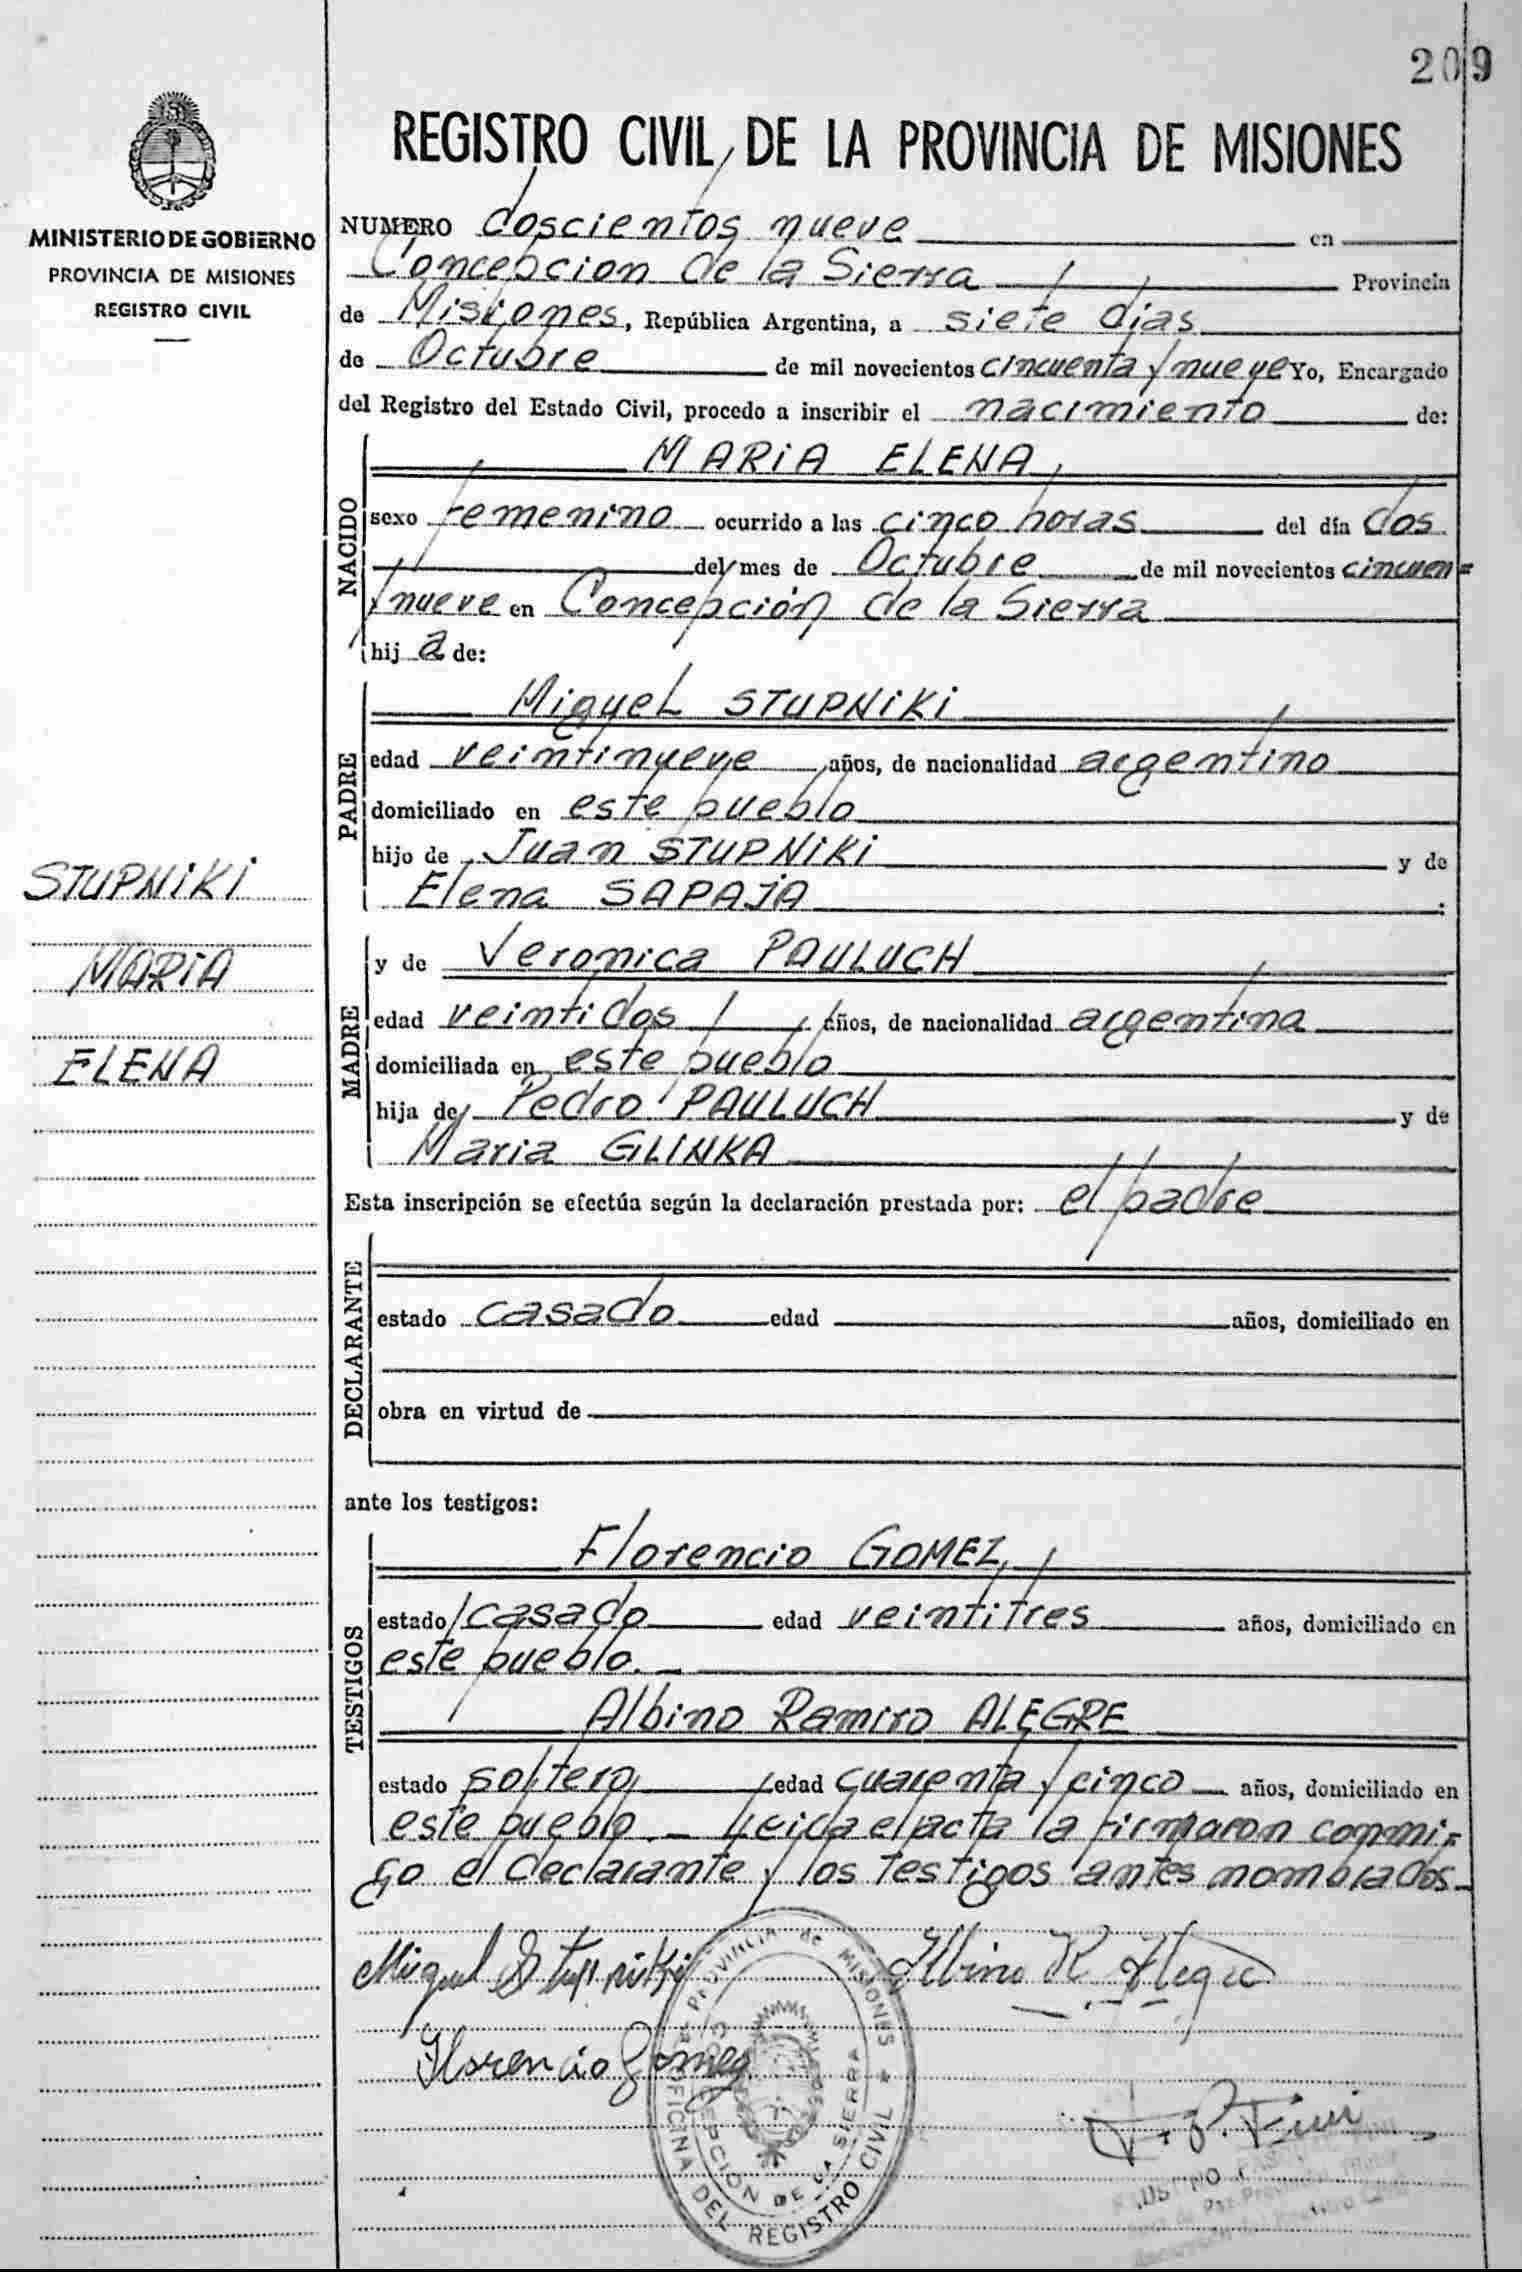 209
REGISTRO CIVIL DE LA PROVINCIA DE MISIONES
MINISTERIO DE GOBIERNO
PROVINCIA DE MISIONES
REGISTRO CIVIL
STUPNIKI
MARIA
ELENA
NUMERO doscientos nueve en
Concepcion de la Sierra Provincia
de Misiones, República Argentina, a siete dias
de Octubre de mil novecientos cincuenta y nueve Yo, Encargado
del Registro del Estado Civil, procedo a inscribir el nacimiento de:
NACIDO
MARIA ELENA
sexo femenino ocurrido a las cinco horas del día dos
del mes de Octubre de mil novecientos cincuen=
y nueve en Concepción de la Sierra
hij a de:
PADRE
Miguel STUPNIKI
edad veintinueve años, de nacionalidad argentino
domiciliado en este pueblo
hijo de Juan STUPNIKI y de
Elena SAPAJA
MADRE
y de Veronica PAULUCH
edad veintidos años, de nacionalidad argentina
domiciliada en este pueblo
hija de Pedro PAULUCH y de
Maria GLINKA
Esta inscripción se efectúa según la declaración prestada por: el padre
DECLARANTE
estado casado edad años, domiciliado en
obra en virtud de
ante los testigos:
TESTIGOS
Florencio GOMEZ
estado casado edad veintitres años, domiciliado en
este pueblo.—
Albino Ramiro ALEGRE
estado soltero edad cuarenta y cinco años, domiciliado en
este pueblo.— Leida el acta la firmaron conmi=
go el declarante y los testigos antes nombrados.
Miguel Stupniki Albino R. Alegre
Florencio Gomez
PROVINCIA de MISIONES
OFICINA DEL REGISTRO CIVIL
CONCEPCION DE LA SIERRA